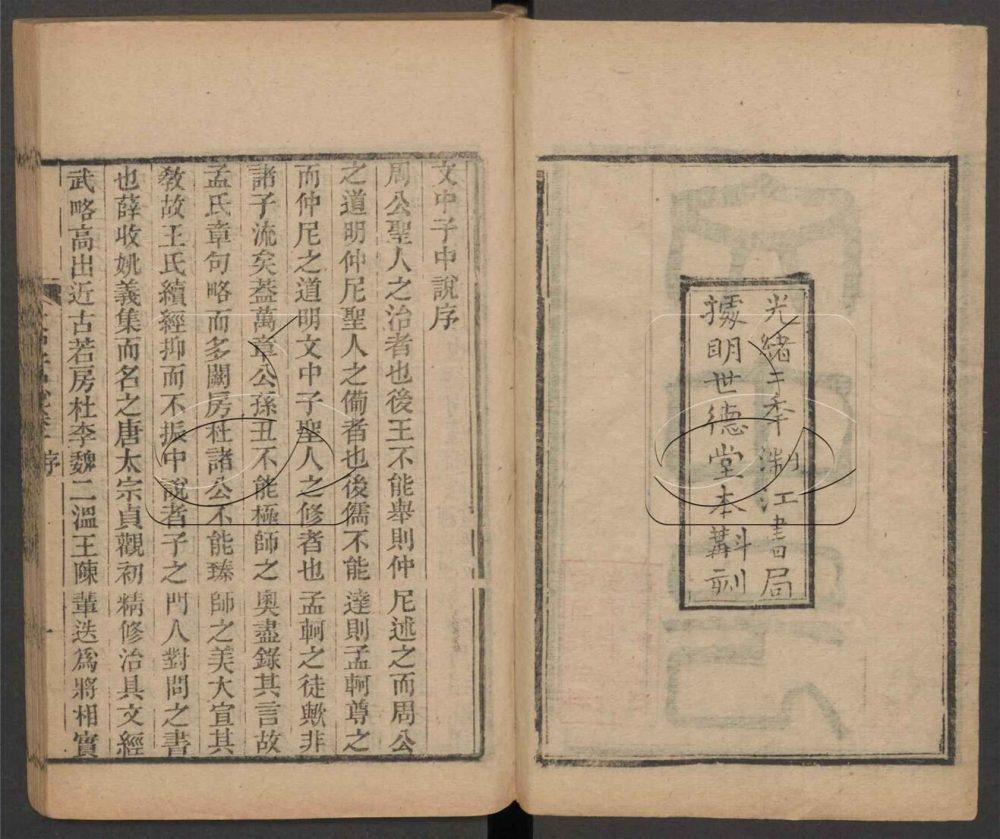 光緒二年浙江書局
據明世德堂本斠刻
文中子中說序
周公聖人之治者也後王不能舉則仲尼述之而周公
之道明仲尼聖人之備者也後儒不能達則孟軻尊之
而仲尼之道明文中子聖人之修者也孟軻之徒歟非
諸子流矣葢萬章公孫丑不能極師之奧盡錄其言故
孟氏章句略而多闕房杜諸公不能臻師之美大宣其
敎故王氏續經抑而不振中說者子之門人對問之書
也薛收姚義集而名之唐太宗貞觀初精修治具文經
武略高出近古若房杜李魏二溫王陳輩迭爲將相實
序
一